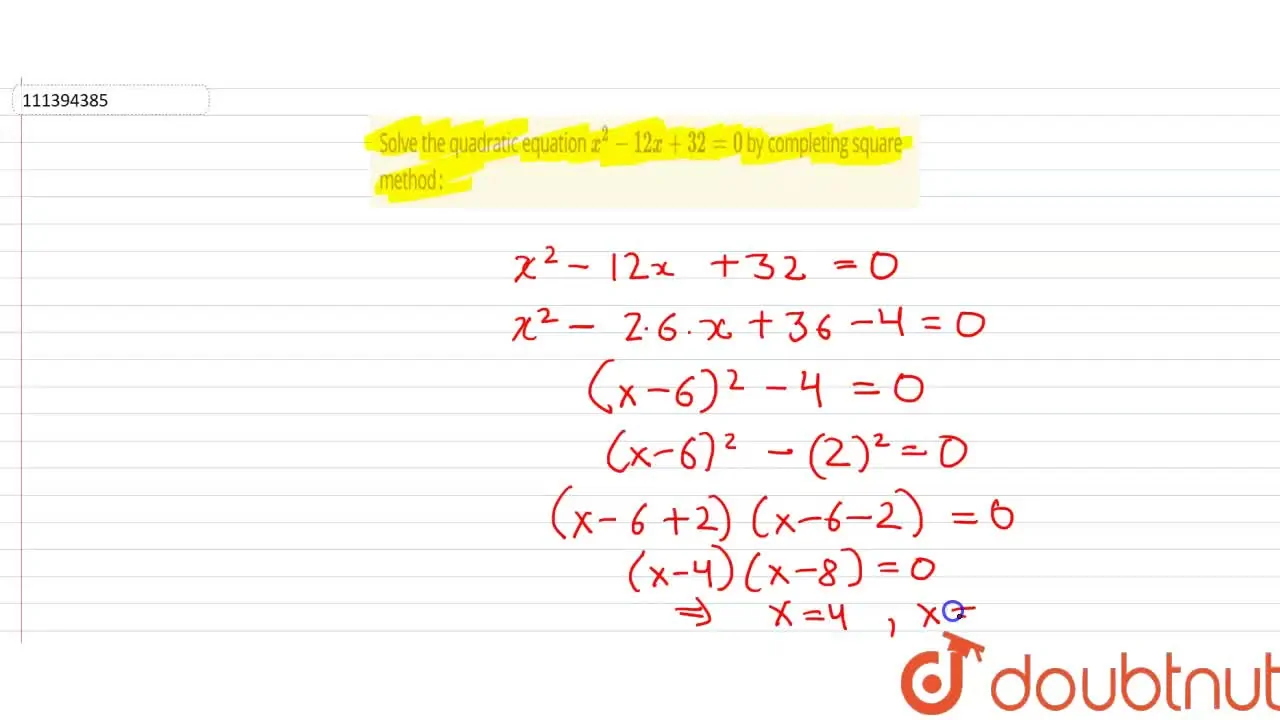 111394385
Solve the quadratic equation x² − 12x + 32 = 0 by completing square
method :
x² − 12x + 32 = 0
x² − 2·6·x + 36 − 4 = 0
(x−6)² − 4 = 0
(x−6)² − (2)² = 0
(x−6+2) (x−6−2) = 0
(x−4) (x−8) = 0
⇒ x = 4 , x =
doubtnut